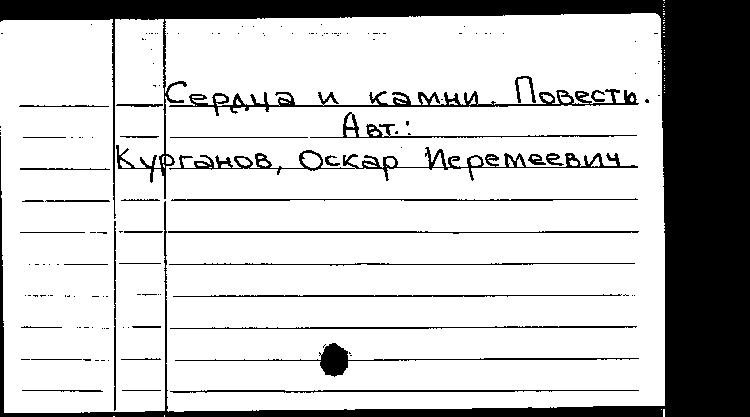 Сердца и камни. Повесть.
Авт.:
Курганов, Оскар Иеремеевич